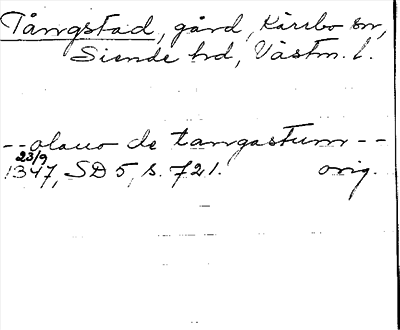 Tångstad, gård, Kärrbo sn,
Siende hd, Västm. l.
-- olauo de tangastum --
23/9
1347, SD 5, s. 721. orig.